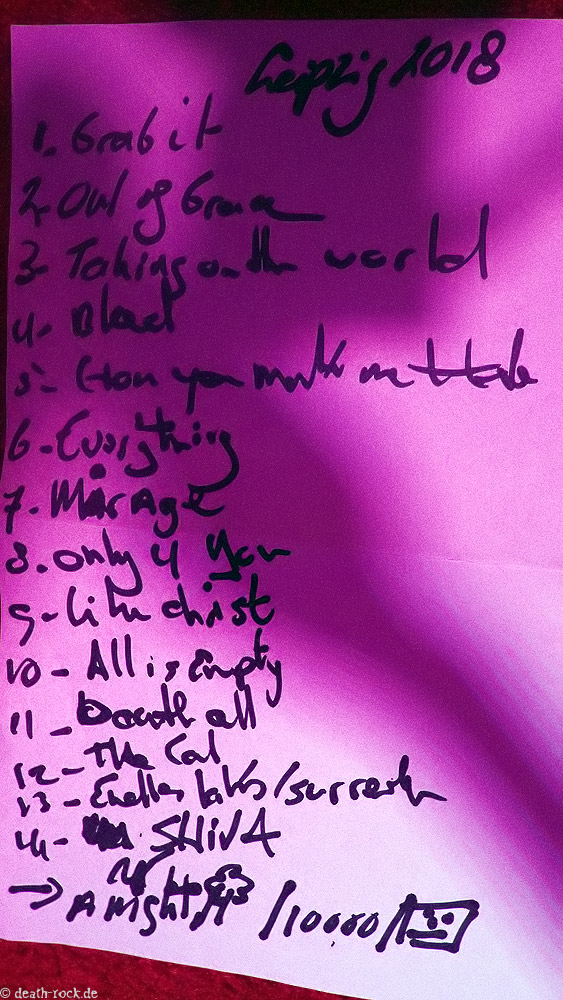 Leipzig 2018
1. Grab it
2. Out of Grace
3- Taking on the world
4- Blood
5- How you make me
6- Everything
7. Mirage
8. only 4 you
9- like christ
10 - All is Empty
11 - all
12 - The Cat
13 - Endless /
14 - SHIVA
→ A night / /10000/
© death-rock.de